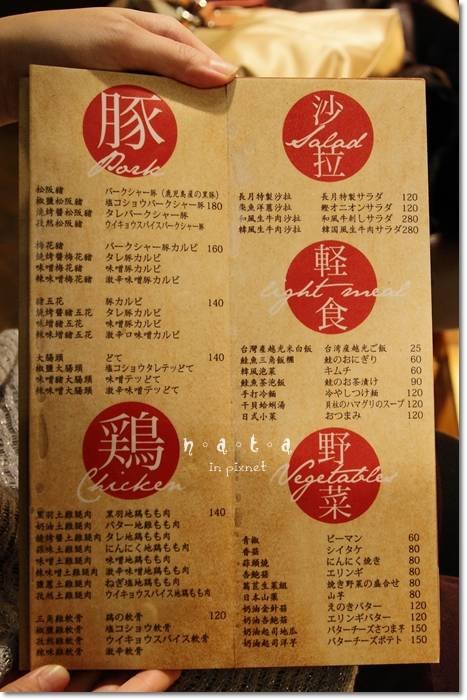 豚
Pork
松阪豬 バークシャー豚（鹿児島産の黒豚）
椒鹽松阪豬 塩コショウバークシャー豚 180
燒烤醬松阪豬 タレバークシャー豚
孜然松阪豬 ウイキョウスパイスバークシャー豚
梅花豬 バークシャー豚カルビ 160
燒烤醬梅花豬 タレ豚カルビ
味噌梅花豬 味噌豚カルビ
辣味噌梅花豬 激辛味噌豚カルビ
豬五花 豚カルビ 140
燒烤醬豬五花 タレ豚カルビ
味噌豬五花 味噌豚カルビ
辣味噌豬五花 激辛口味噌豚カルビ
大腸頭 どて 140
椒鹽大腸頭 塩コショウタレテッどて
味噌豬大腸頭 味噌テッどて
辣味噌大腸頭 激辛味噌テッどて
鶏
Chicken
黑羽土雞腿肉 黒羽地鶏もも肉 140
奶油土雞腿肉 バター地雞もも肉
燒烤醬土雞腿肉 タレ地鶏もも肉
蒜味土雞腿肉 にんにく地鶏もも肉
味噌土雞腿肉 味噌地鶏もも肉
辣味噌土雞腿肉 激辛味噌地鶏もも肉
鹽蔥土雞腿肉 ねぎ塩地鶏もも肉
孜然土雞腿肉 ウイキョウスパイス地鶏もも肉
三角雞軟骨 鶏の軟骨 120
椒鹽雞軟骨 塩コショウ軟骨
孜然雞軟骨 ウイキョウスパイス軟骨
辣味雞軟骨 激辛軟骨
沙拉
Salad
長月特製沙拉 長月特製サラダ 120
柴魚洋蔥沙拉 鰹オニオンサラダ 120
和風生牛肉沙拉 和風牛刺しサラダ 280
韓風生牛肉沙拉 韓国風生牛肉サラダ 280
軽食
light meal
台灣産越光米白飯 台湾産越光ご飯 25
鮭魚三角飯糰 鮭のおにぎり 60
韓風泡菜 キムチ 60
鮭魚茶泡飯 鮭のお茶漬け 90
手打冷麵 冷やしつけ麺 120
干貝蛤蜊湯 貝柱のハマグリのスープ 120
日式小菜 おつまみ 120
野菜
Vegetables
青椒 ピーマン 60
香菇 シイタケ 80
蒜頭燒 にんにく焼き 80
杏鮑菇 エリンギ 80
萵苣生菜組 焼き野菜の盛合せ 80
日本山藥 山芋 80
奶油金針菇 えのきバター 120
奶油杏鮑菇 エリンギバター 120
奶油起司地瓜 バターチーズさつま芋 150
奶油起司洋芋 バターチーズポテト 150
nata
in pixnet